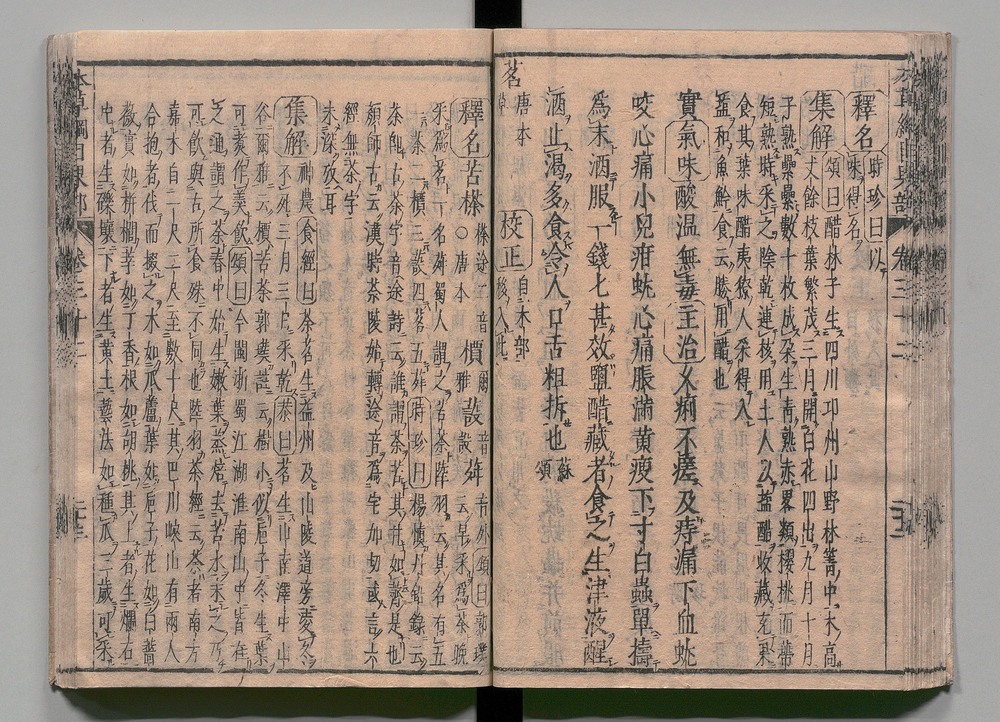 釋名時珍曰以
味得名
集解頌曰醋林子生四川邛州山野林箐中木高
丈餘枝葉繁茂三月開白花四出九月十月
子熟纍纍數十枚成朶生青熟赤畧類櫻桃而蒂
短熟時采之陰乾連核用土人以鹽醋收藏充果
食其葉味酸夷獠人采得入
鹽和魚鱠食云勝用醋也
實氣味酸温無毒主治久痢不瘥及痔漏下血蚘
咬心痛小兒疳蚘心痛脹滿黄瘦下寸白蟲單擣
爲末酒服一錢匕甚效鹽醋藏者食之生津液醒
酒止渴多食令人口舌粗拆也蘇頌
茗唐本草校正自木部移入此
釋名苦𣗪
唐本檟爾雅蔎音設荈音舛頌曰郭璞
云早采爲茶晚
采爲茗一名荈蜀人謂之苦茶陸羽云其名有五
一茶二檟三蔎四茗五荈時珍曰楊慎丹鉛錄云
茶即古荼字音途詩云誰謂荼苦其甘如薺是也
顔師古云漢時荼陵始轉途音爲宅加切或言六
經無茶字
未深攷耳
集解神農食經曰茶茗生益州及山陵道旁凌冬
不死三月三日采乾恭曰茗生山南漢中山
谷爾雅云檟苦荼郭璞註云樹小似巵子冬生葉
可煮作羹飲頌曰今閩浙蜀江湖淮南山中皆有
之通謂之茶春中始生嫩葉蒸焙去苦水末之乃
可飲與古所食殊不同也陸羽茶經云茶者南方
嘉木自一尺二尺至數十尺其巴川峽山有兩人
合抱者伐而掇之木如瓜蘆葉如巵子花如白薔
薇實如栟櫚蒂如丁香根如胡桃其上者生爛石
中者生礫壤下者生黄土藝法如種瓜三歲可采